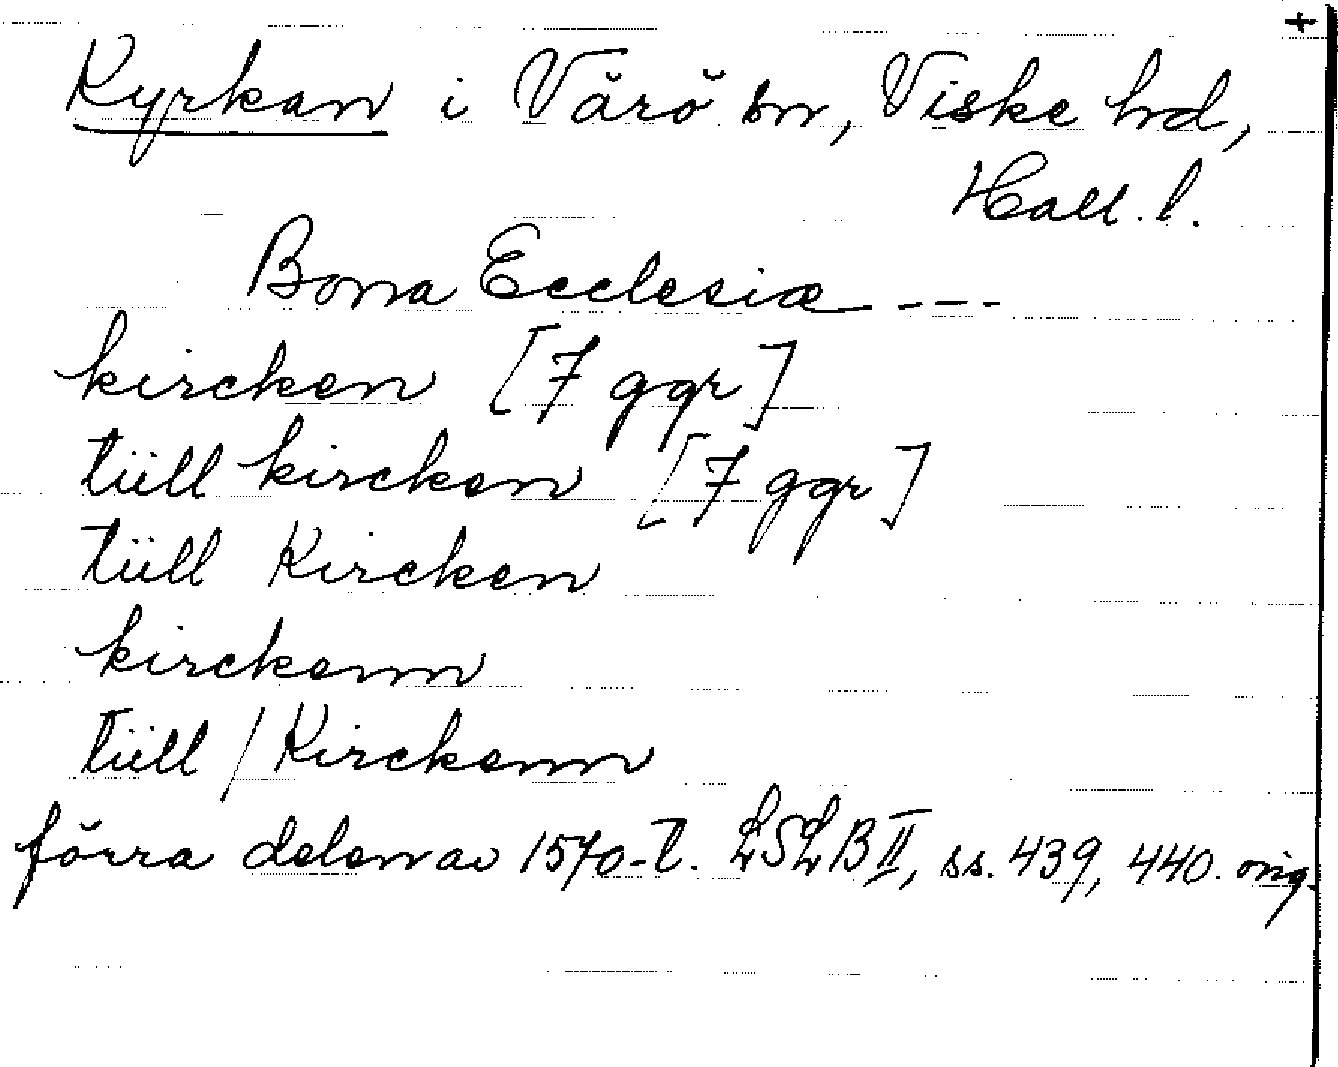 +
Kyrkan i Värö sn, Viske hd,
Hall. l.
Bona Ecclesiæ ----
kircken [7 ggr]
tüll kircken [7 ggr]
tüll Kircken
kirckenn
tüll / Kirckenn
förra delen av 1570-t. LSLB II, ss. 439, 440. orig.